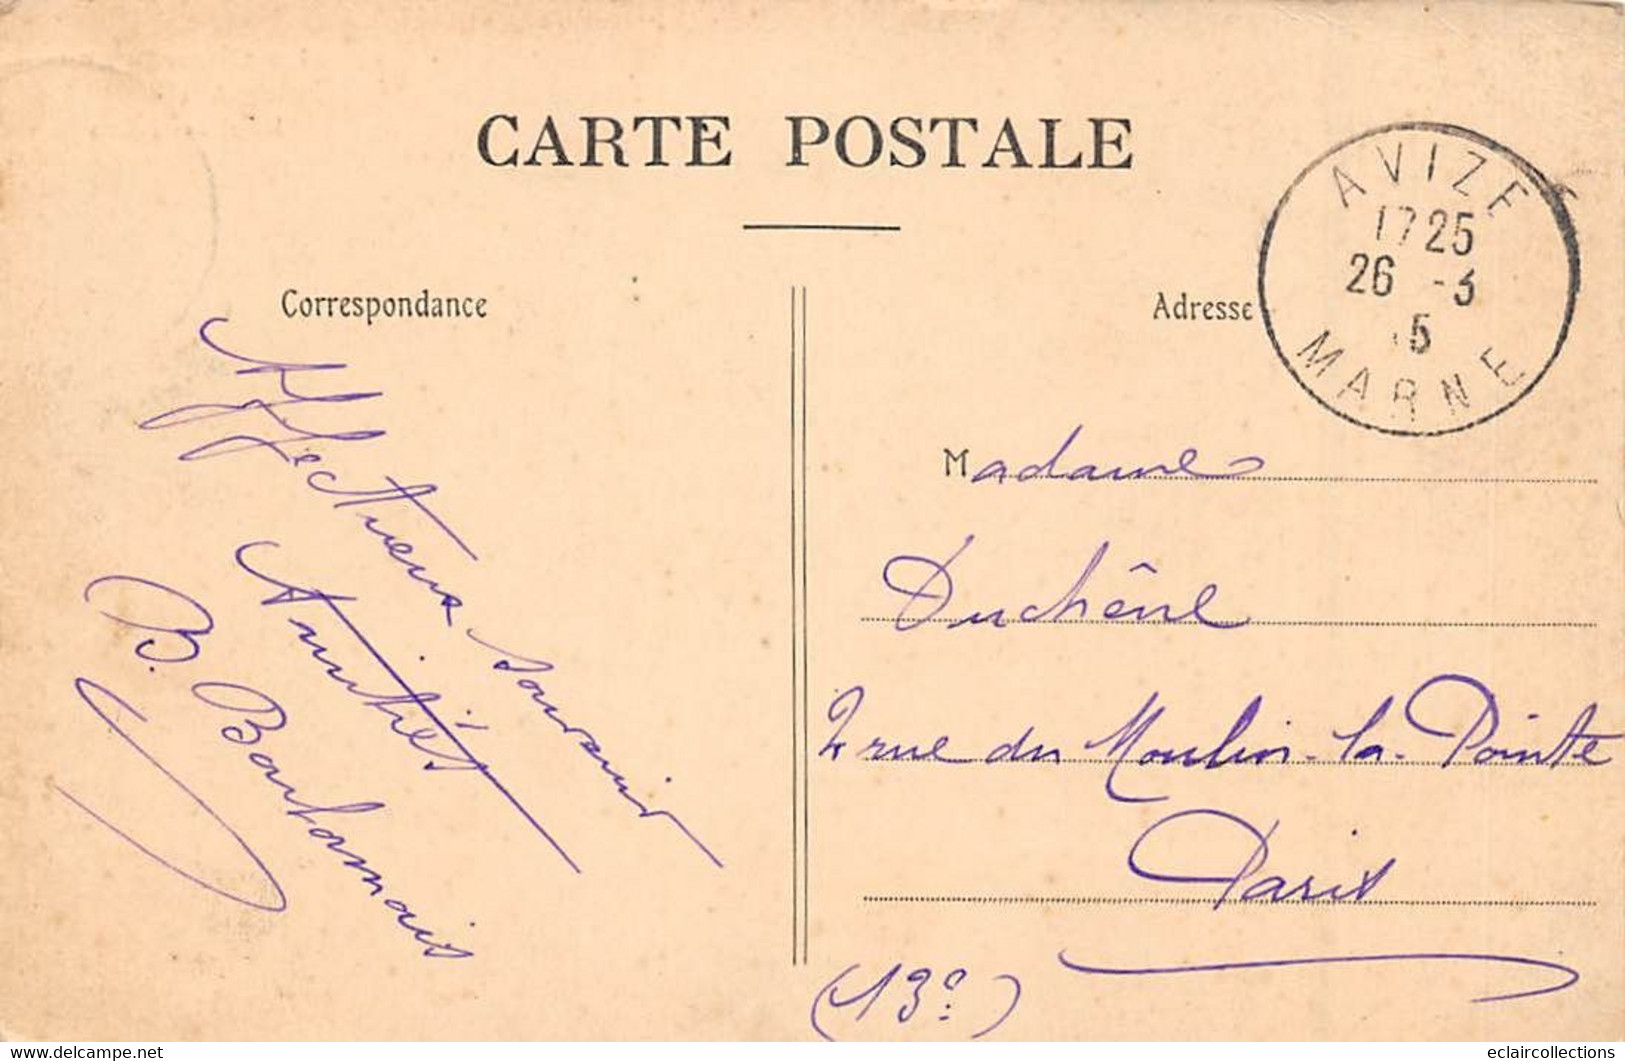 CARTE POSTALE
Correspondance
Affectueux souvenir
Amitiés
B. Bontomais
Adresse
AVIZE
17 25
26 -3
15
MARNE
Madame
Duchêne
2 rue du Moulin-la-Pointe
Paris
(13e)
delcampe.net
eclaircollections